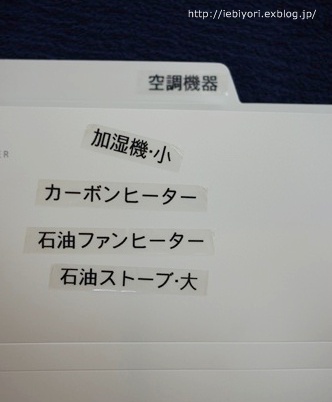 http://iebiyori.exblog.jp/
空調機器
加湿機・小
ER
カーボンヒーター
石油ファンヒーター
石油ストーブ・大